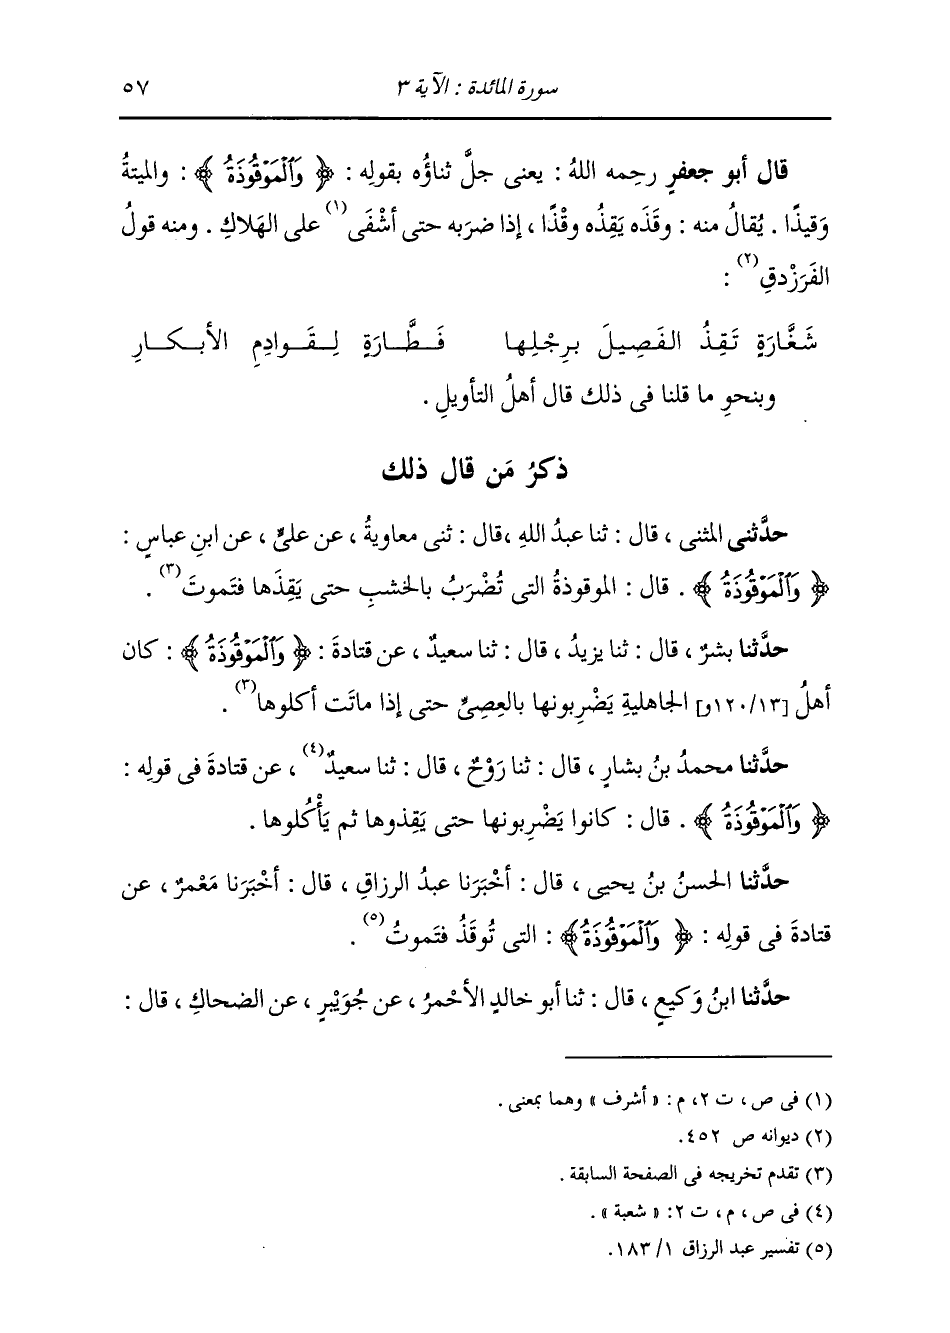 سورة المائدة : الآية ٣ ٥٧
قال أبو جعفرٍ رحِمه اللهُ : يعنى جلَّ ثناؤُه بقولِه : ﴿ وَٱلْمَوْقُوذَةُ ﴾ : والميتةُ
وَقيذًا . يُقالُ منه : وقَذَه يَقِذُه وقْذًا ، إذا ضرَبه حتى أشْفَى(١) على الهَلاكِ . ومنه قولُ
الفَرَزْدقِ(٢) :
شَغَّارَةٍ تَقِذُ الفَصِيلَ بـرِجْلِـها فَـطَّـارَةٍ لِـقَـوادِمِ الأبـكـارِ
وبنحوِ ما قلنا فى ذلك قال أهلُ التأويلِ .
ذكرُ مَن قال ذلك
حدَّثنى المثنى ، قال : ثنا عبدُ اللهِ ،قال : ثنى معاويةُ ، عن علىٍّ ، عن ابنِ عباسٍ :
﴿ وَٱلْمَوْقُوذَةُ ﴾ . قال : الموقوذةُ التى تُضْرَبُ بالخشبِ حتى يَقِذَها فتَموتَ(٣) .
حدَّثنا بشرٌ ، قال : ثنا يزيدُ ، قال : ثنا سعيدٌ ، عن قتادةَ : ﴿ وَٱلْمَوْقُوذَةُ ﴾ : كان
أهلُ [١٢٠/١٣و] الجاهليةِ يَضْرِبونها بالعِصِىِّ حتى إذا ماتَت أكلوها(٣) .
حدَّثنا محمدُ بنُ بشارٍ ، قال : ثنا رَوْحٌ ، قال : ثنا سعيدٌ(٤) ، عن قتادةَ فى قولِه :
﴿ وَٱلْمَوْقُوذَةُ ﴾ . قال : كانوا يَضْرِبونها حتى يَقِذوها ثم يَأْكُلوها .
حدَّثنا الحسنُ بنُ يحيى ، قال : أخبَرَنا عبدُ الرزاقِ ، قال : أخبَرَنا مَعْمرٌ ، عن
قتادةَ فى قولِه : ﴿ وَٱلْمَوْقُوذَةُ ﴾ : التى تُوقَذُ فتَموتُ(٥) .
حدَّثنا ابنُ وَكيعٍ ، قال : ثنا أبو خالدٍ الأحْمرُ ، عن جُوَيْبرٍ ، عن الضحاكِ ، قال :
(١) فى ص ، ت ٢، م : « أشرف » وهما بمعنى .
(٢) ديوانه ص ٤٥٢.
(٣) تقدم تخريجه فى الصفحة السابقة .
(٤) فى ص ، م ، ت ٢: « شعبة » .
(٥) تفسير عبد الرزاق ١/ ١٨٣.